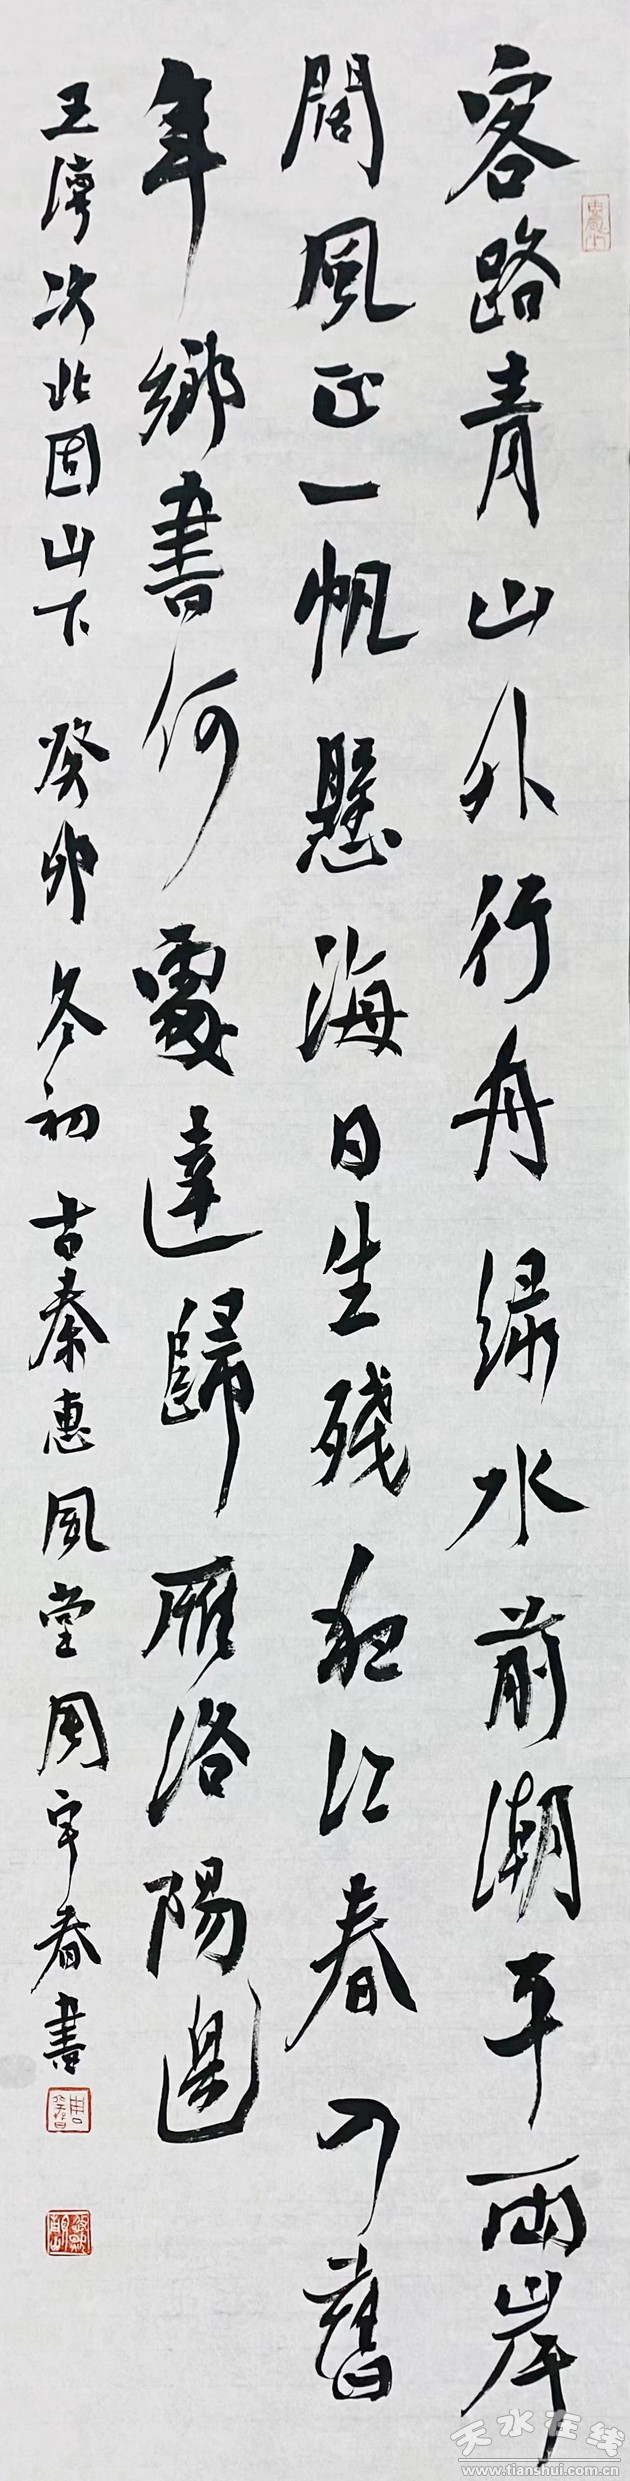 客路青山外行舟緑水前潮平兩岸
闊風正一帆懸海日生殘夜江春入舊
年鄉書何處達歸雁洛陽邊
王灣次北固山下 癸卯冬初 古秦惠風堂周宇春書
天水在线
www.tianshui.com.cn